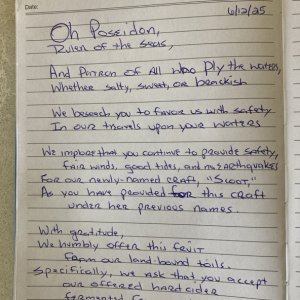 Date:
6/12/25
Oh Poseidon,
Ruler of the Seas,
And Patron of All who Ply the waters,
Whether salty, sweet, or brackish
We beseech you to favor us with safety
In our travels upon your waters
We implore that you continue to provide safety,
fair winds, good tides, and no earthquakes
For our newly-named craft, "Scoot,"
As you have provided for this craft
under her previous names.
With gratitude,
We humbly offer this fruit
From our land-bound toils.
Specifically, we ask that you accept
our offered hard cider
fermented